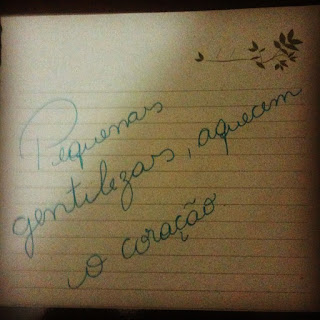 Pequenas
gentilezas, aquecem
o coração.